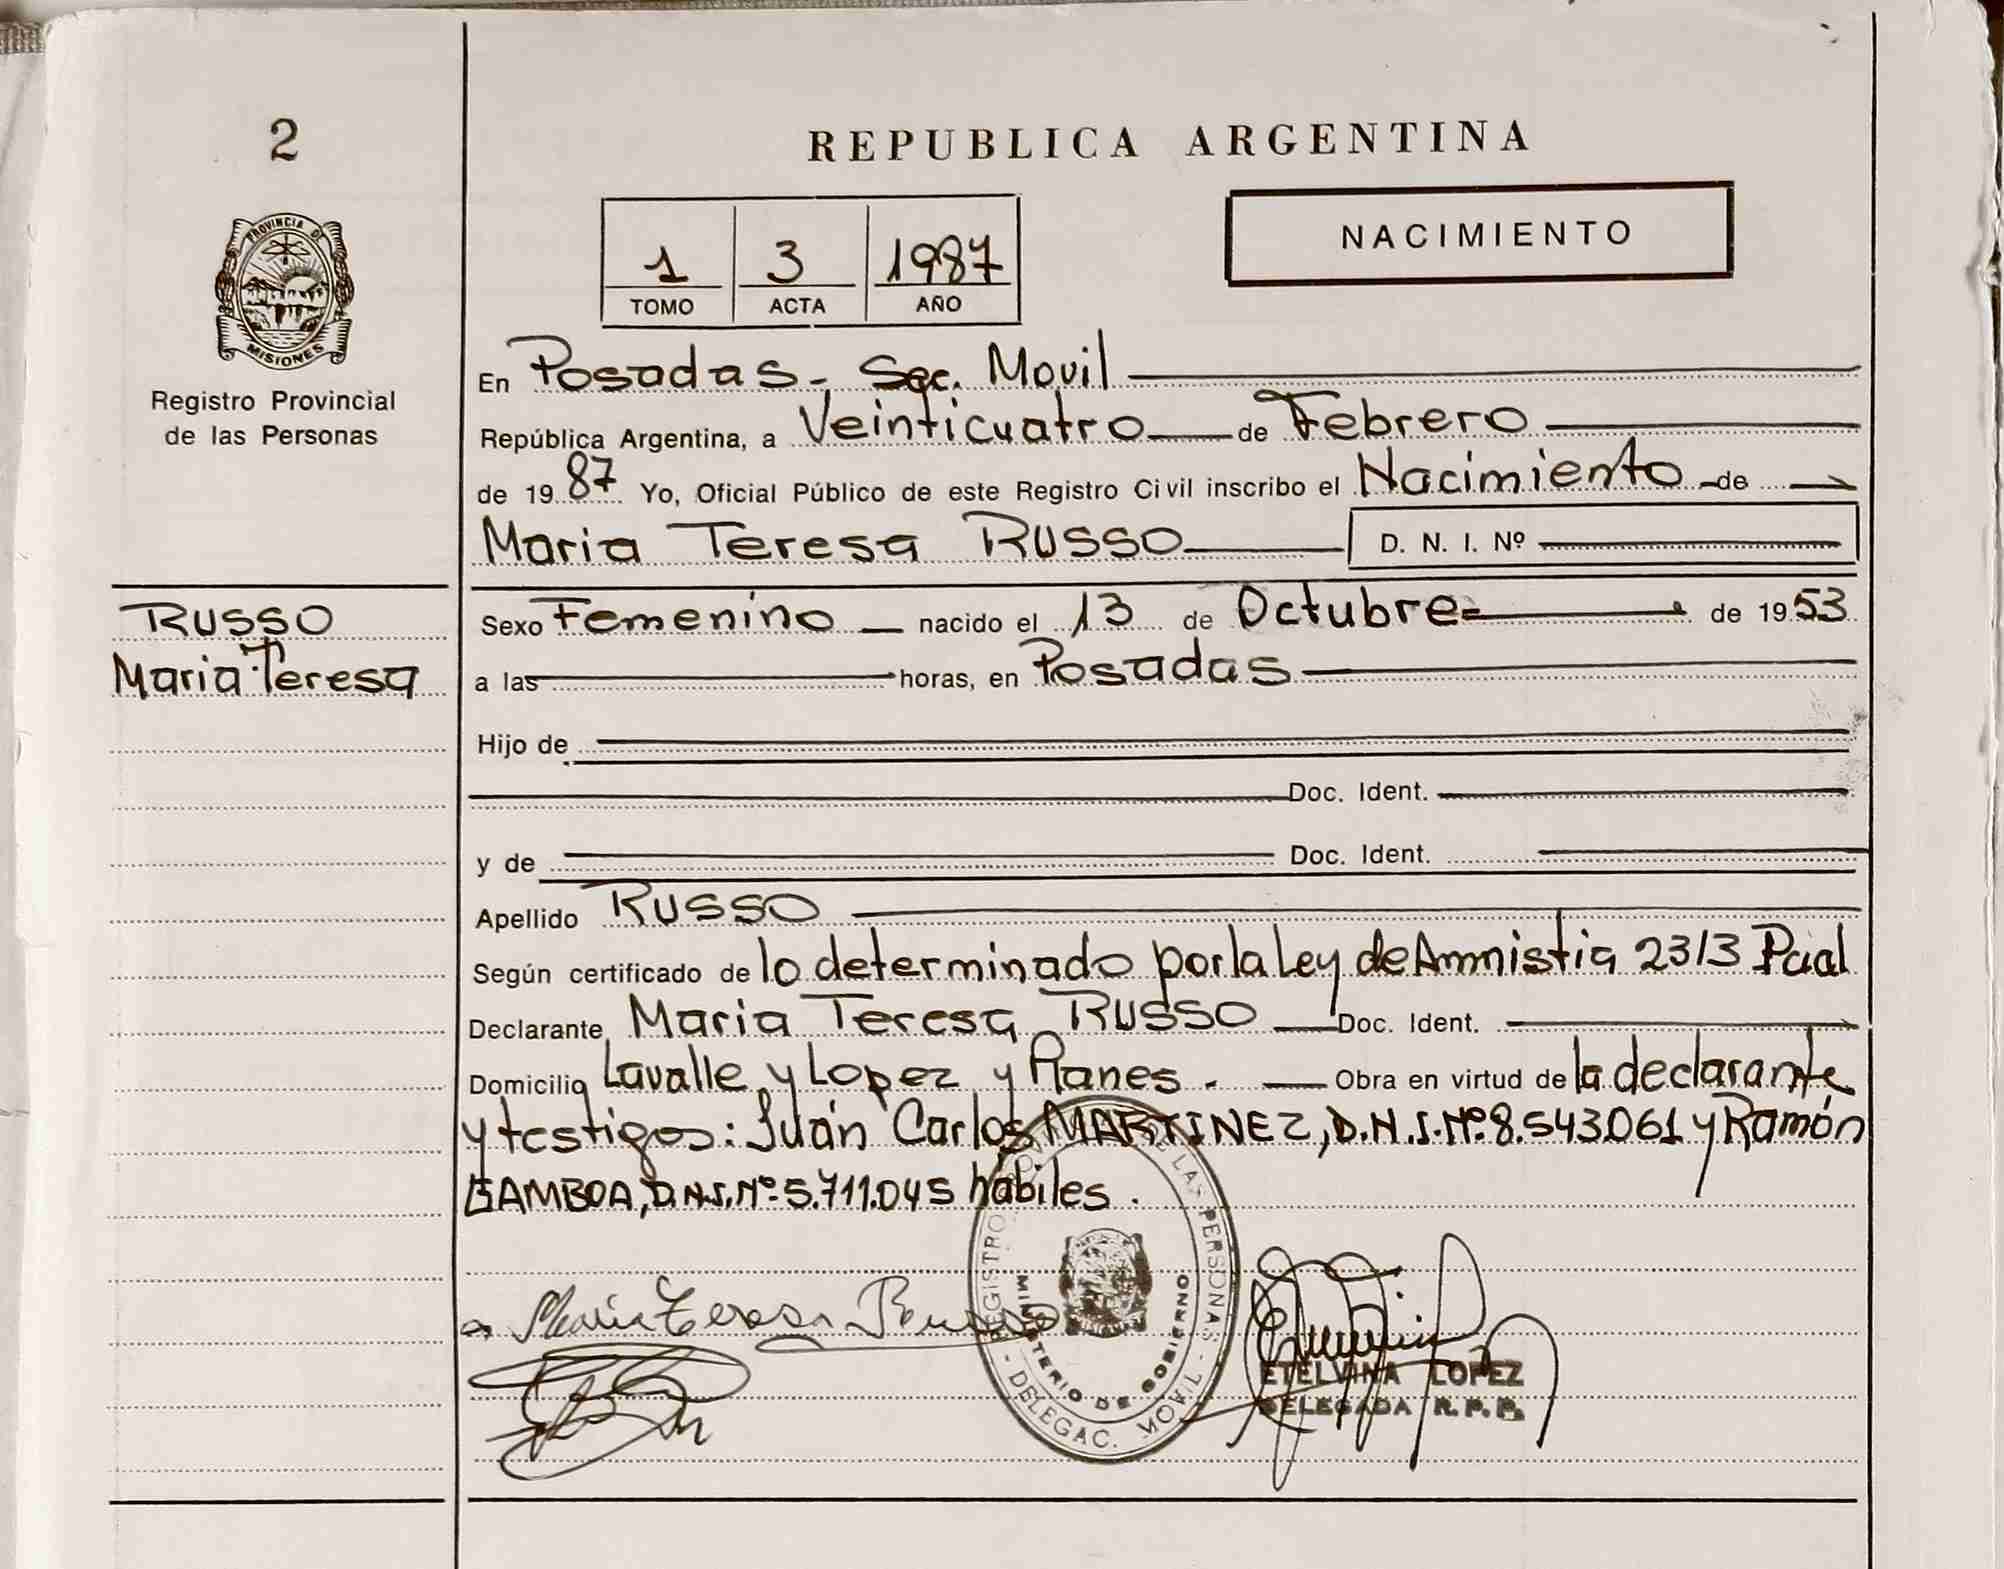 2
PROVINCIA DE
MISIONES
Registro Provincial
de las Personas
RUSSO
Maria Teresa
REPUBLICA ARGENTINA
1 3 1987
TOMO ACTA AÑO
NACIMIENTO
En Posadas - Sec. Movil
República Argentina, a Veinticuatro de Febrero
de 1987 Yo, Oficial Público de este Registro Civil inscribo el Nacimiento de
Maria Teresa RUSSO D. N. I. Nº
Sexo Femenino nacido el 13 de Octubre de 1953
a las horas, en Posadas
Hijo de
Doc. Ident.
y de Doc. Ident.
Apellido RUSSO
Según certificado de lo determinado por la Ley de Amnistia 2313 Pcial
Declarante Maria Teresa RUSSO Doc. Ident.
Domicilio Lavalle y Lopez y Planes. Obra en virtud de la declarante
y testigos: Juán Carlos MARTINEZ, D.N.I.Nº 8.543.061 y Ramón
GAMBOA, D.N.I.Nº 5.711.045 hábiles.
Maria Teresa Russo
REGISTRO PROV. DE LAS PERSONAS - DELEGAC. MOVIL -
MINISTERIO DE GOBIERNO
ETELVINA LOPEZ
DELEGADA R.P.P.